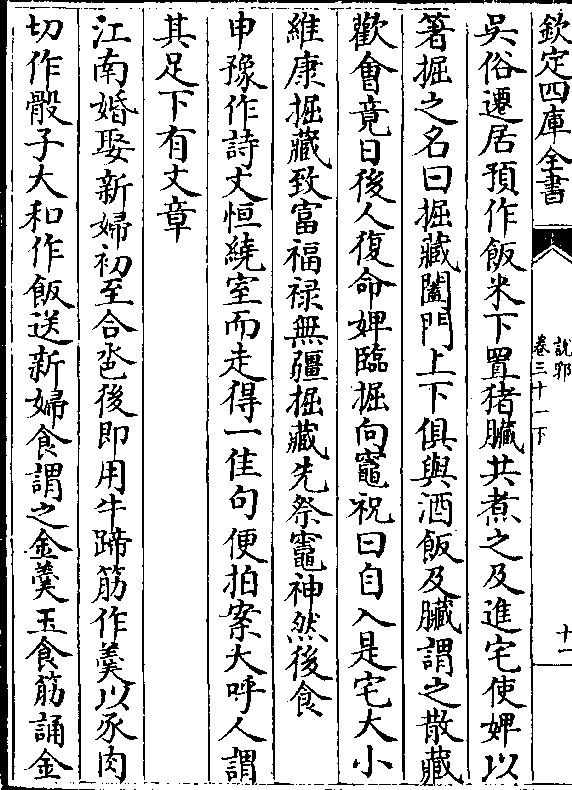 欽定四庫全書
說郛
卷三十一下
十二
吳俗遷居預作飯米下置猪臟共煮之及進宅使婢以
箸掘之名曰掘藏闔門上下俱與酒飯及臟謂之散藏
歡會竟日後人復命婢臨掘向竈祝曰自入是宅大小
維康掘藏致富福禄無疆掘藏先祭竈神然後食
申豫作詩丈恒繞室而走得一佳句便拍案大呼人謂
其足下有文章
江南婚娶新婦初至合巹後即用牛蹄筋作羮以豕肉
切作骰子大和作飯送新婦食謂之金羮玉食筋誦金